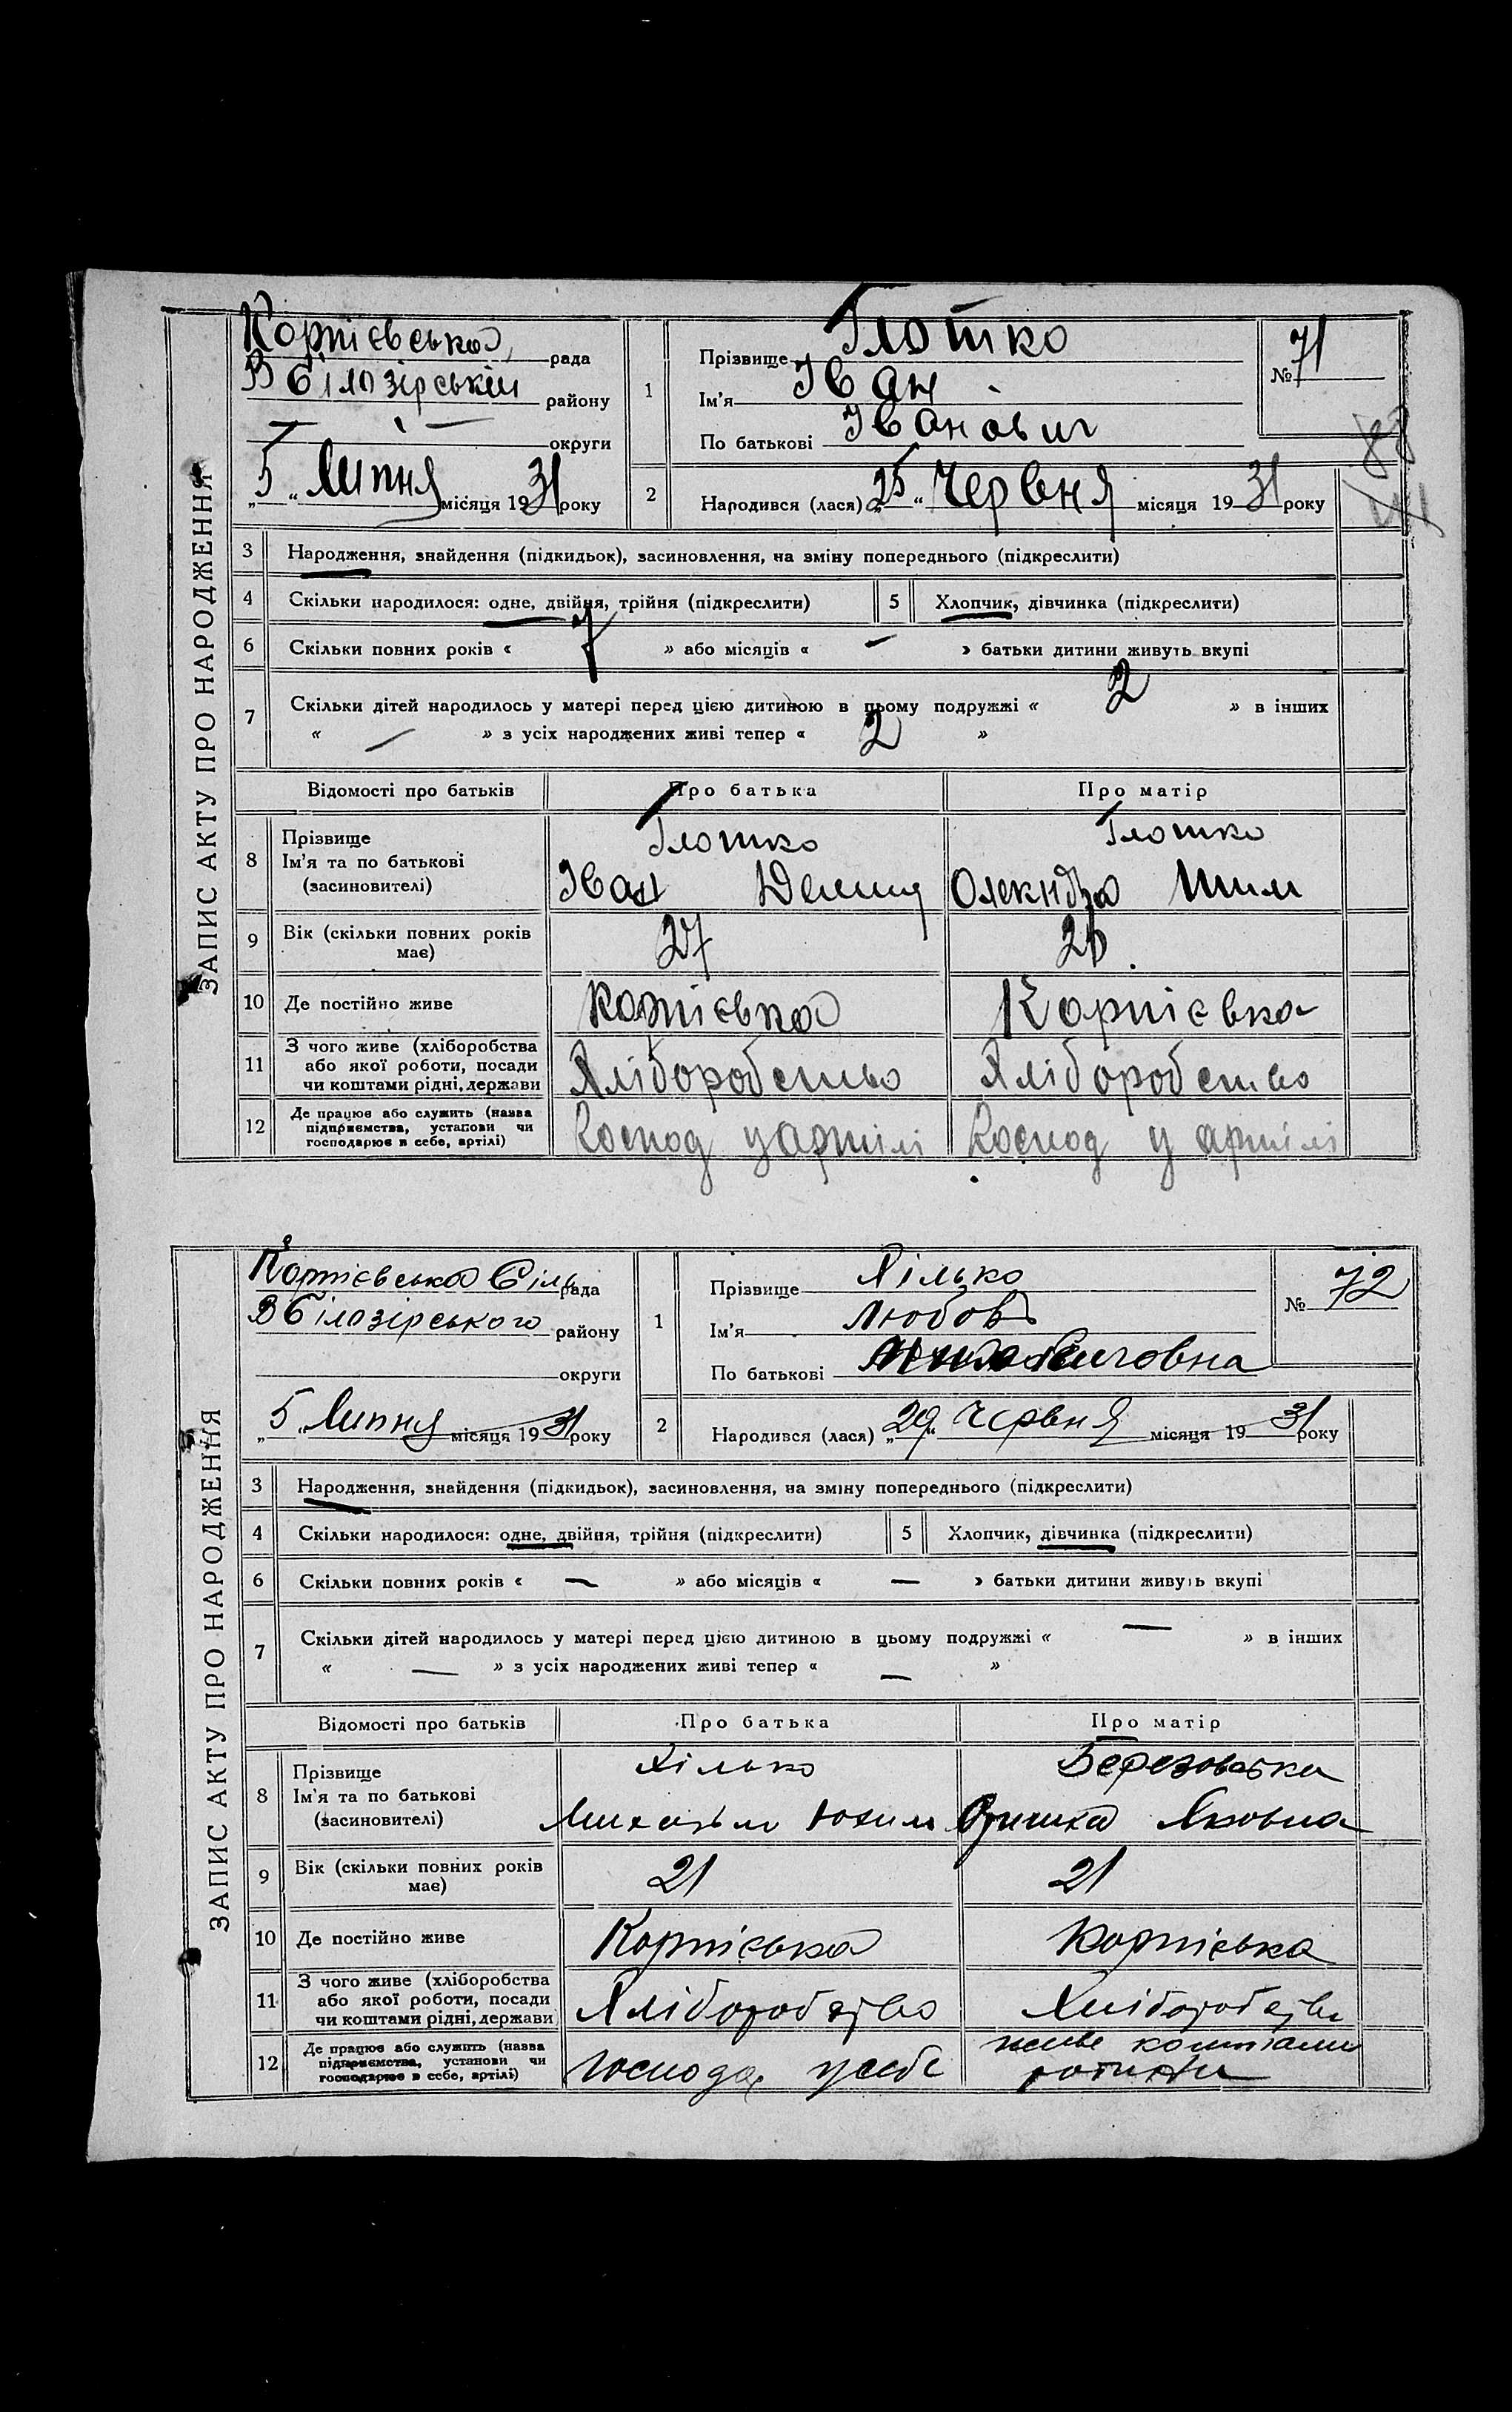 ЗАПИС АКТУ ПРО НАРОДЖЕННЯ
Корнієвська рада
В Білозірській району
— округи
„5“ Липня місяця 1931 року
1 Прізвище Глотко
Ім'я Іван
По батькові Іванович
№ 71
88
2 Народився (лася) „25“ Червня місяця 1931 року
3 Народження, знайдення (підкидьок), засиновлення, на зміну попереднього (підкреслити)
4 Скільки народилося: одне, двійня, трійня (підкреслити) 5 Хлопчик, дівчинка (підкреслити)
6 Скільки повних років « 7 » або місяців « — » батьки дитини живуть вкупі
7 Скільки дітей народилось у матері перед цією дитиною в цьому подружжі « 2 » в інших
« — » з усіх народжених живі тепер « 2 »
Відомості про батьків Про батька Про матір
8 Прізвище Глотко Глотко
Ім'я та по батькові
(засиновителі) Іван Олекндра
9 Вік (скільки повних років має) 27 26
10 Де постійно живе Корнієвка Корнієвка
11 З чого живе (хліборобства
або якої роботи, посади
чи коштами рідні, держави Хліборобство Хліборобство
12 Де працює або служить (назва
підприємства, установи чи
господарює в себе, артілі) Господ у артілі Господ у артілі
ЗАПИС АКТУ ПРО НАРОДЖЕННЯ
Корнієвська Сіль рада
В Білозірського району
округи
„5“ Липня місяця 1931 року
1 Прізвище Хілько
Ім'я Любов
По батькові
№ 72
2 Народився (лася) „29“ Червня місяця 1931 року
3 Народження, знайдення (підкидьок), засиновлення, на зміну попереднього (підкреслити)
4 Скільки народилося: одне, двійня, трійня (підкреслити) 5 Хлопчик, дівчинка (підкреслити)
6 Скільки повних років « — » або місяців « — » батьки дитини живуть вкупі
7 Скільки дітей народилось у матері перед цією дитиною в цьому подружжі « — » в інших
« — » з усіх народжених живі тепер « — »
Відомості про батьків Про батька Про матір
8 Прізвище Хілько Березовська
Ім'я та по батькові
(засиновителі) Михайло Юхим Оришка Яковна
9 Вік (скільки повних років має) 21 21
10 Де постійно живе Корнієвка Корнієвка
11 З чого живе (хліборобства
або якої роботи, посади
чи коштами рідні, держави Хліборобство Хліборобство
12 Де працює або служить (назва
підприємства, установи чи
господарює в себе, артілі) господар у себе живе коштами
родини